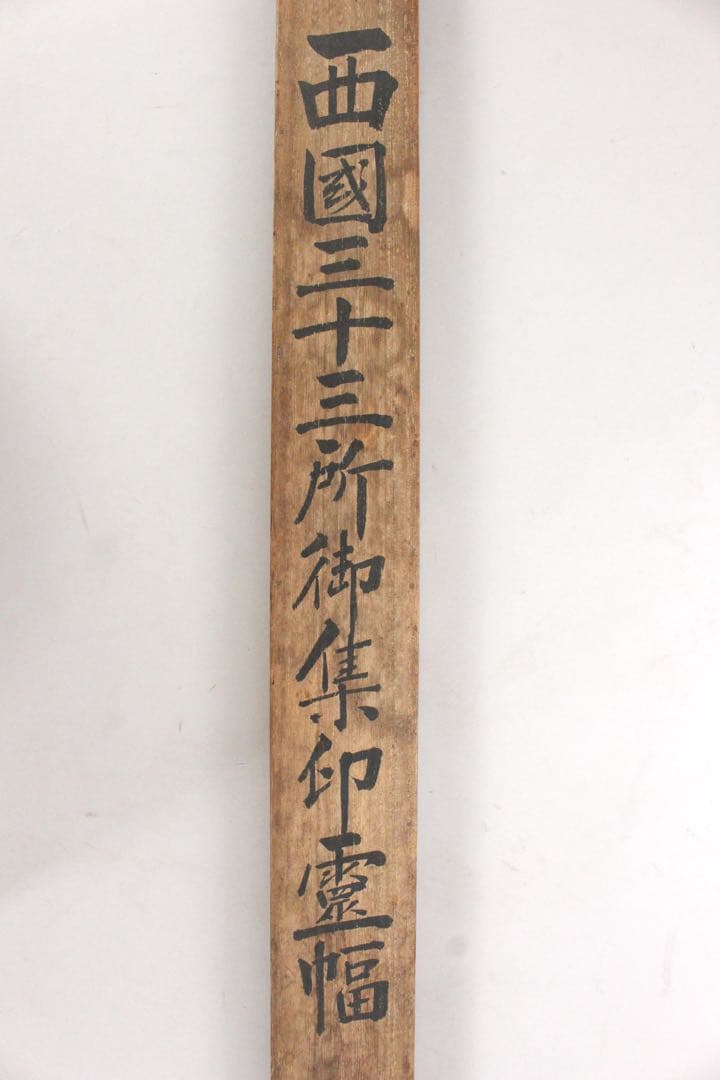 西國三十三所御集印霊幅